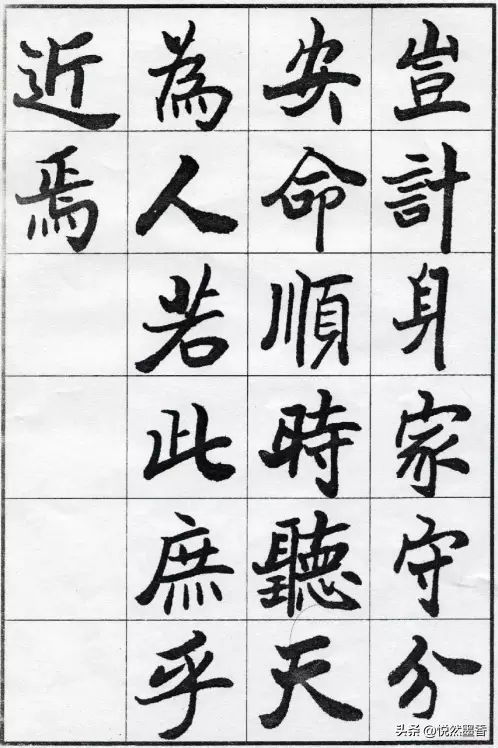 豈計身家守分
安命順時聽天
為人若此庶乎
近焉
头条@悦然墨香